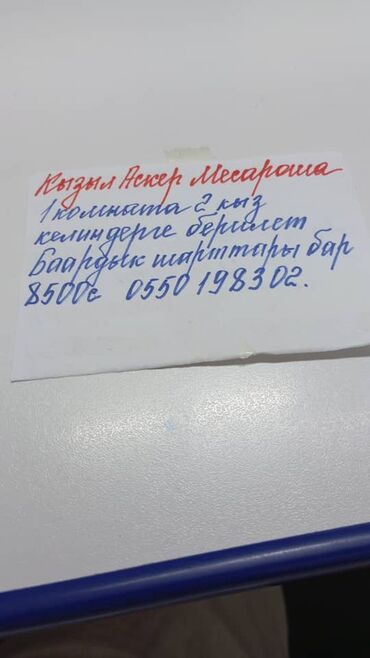 Кызыл Аскер Месароша
1 комната 2 кыз
келиндерге берилет
Баардык шарттары бар
8500с 0550 198302.